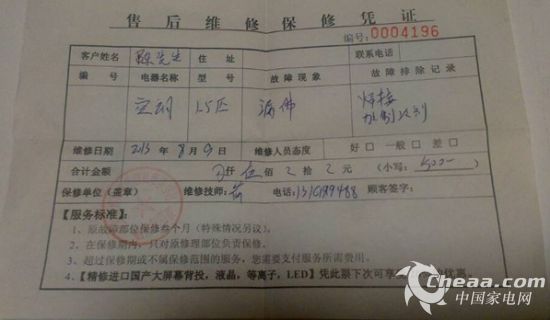 售后维修保修凭证
编号:0004196
客户姓名 陈先生 住址 联系电话
编号 电器名称 型号 故障现象 故障排除记录
空调 1.5匹 漏佛 焊接
加制冷剂
维修日期 2013年8月9日 维修人员态度 好口 一般口 差口
合计金额 仟伍佰 拾 元 (小写: 500-
保修单位(盖章) 维修技师: 电话: 顾客签字:
【服务标准:】
1、原故障部位保修叁个月(特殊情况另议)。
2、在保修期内,只对原修理部位负责保修。
3、超过保修期或不属保修范围的服务,您需要支付服务所需费用。
4、【精修进口国产大屏幕背投,液晶,等离子,LED】凭此票下次可享
Cheaa.com
中国家电网